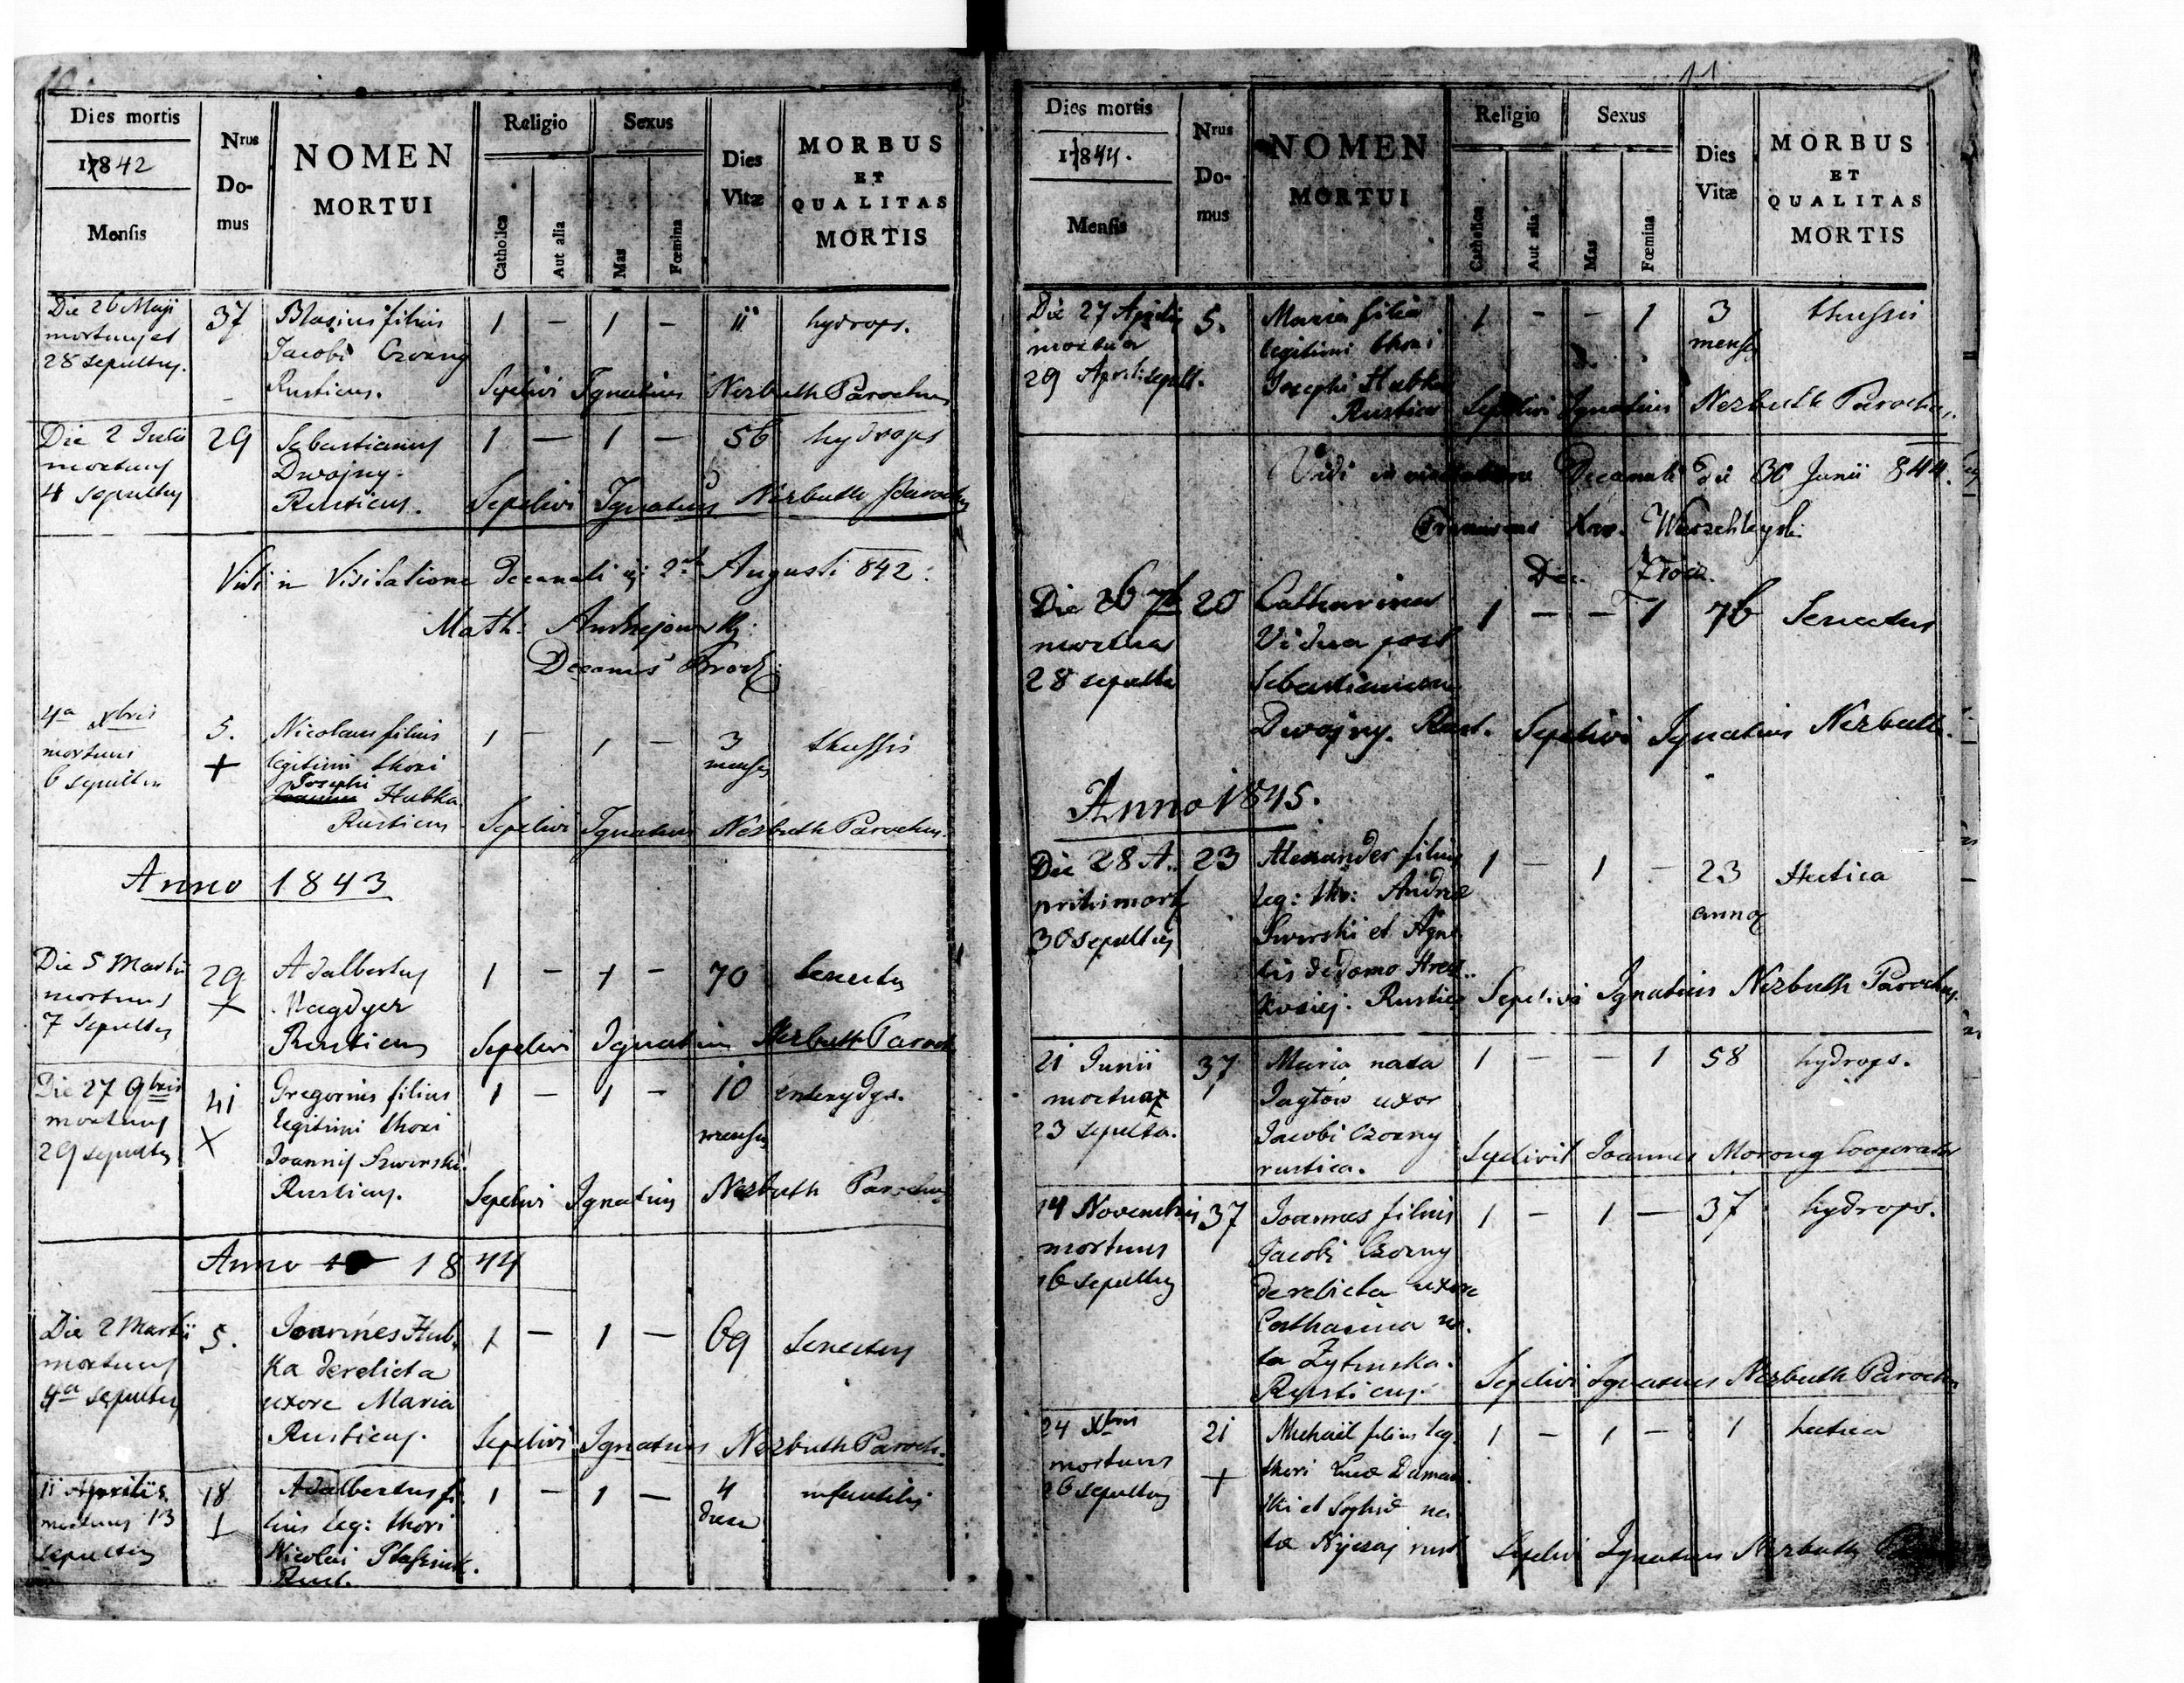 10.
Dies mortis
17842
Mensis
Nrus Domus
NOMEN
MORTUI
Religio
Catholica
Aut alia
Sexus
Mas
Fœmina
Dies
Vitæ
MORBUS
ET
QUALITAS
MORTIS
Die 26 Maji 37 Blasius filius 1 – 1 – ii hydrops.
mortuus et Jacobi Czorny
28 sepultus. Rusticus. Sepelivi Ignatius Nezbuth Parochus
Die 2 Julii 29 Sebastianus 1 – 1 – 56 hydrops
mortuus Dwojny.
4 sepultus Rusticus. Sepelivi Ignatius Nezbuth Parochus
Vidi in Visitatione Decanali 2 Augusti 842.
Math:
Decanus
4a Xbris 5. Nicolaus filius 1 – 1 – 3 thussis
mortuus + legitimi thori menses
6 sepultus Josephi Hubka
Rusticus Sepelivi Ignatius Nezbuth Parochus.
Anno 1843
Die 5 Martii 29 Adalbertus 1 – 1 – 70 Senectus
mortuus + Magdyer
7 Sepultus Rusticus Sepelivi Ignatius Nezbuth Paroch
Die 27 9bris 41 Gregorius filius 1 – 1 – 10
mortuus X legitimi thori menses
29 sepultus Joannis Szwirski
Rusticus. Sepelivi Ignatius Nezbuth Parochus
Anno 1844
Die 2 Martii 5. Joannes Hub- 1 – 1 – 69 Senectus
mortuus ka derelicta
4a sepultus uxore Maria
Rusticus. Sepelivi Ignatius Nezbuth Paroch.
ii Aprilis 18 Adalbertus fi- 1 – 1 – 4 infantilis
mortuus 13 + lius leg: thori dies
sepultus Nicolai
Rust.
11
Dies mortis
17844.
Mensis
Nrus Domus
NOMEN
MORTUI
Religio
Catholica
Aut alia
Sexus
Mas
Fœmina
Dies
Vitæ
MORBUS
ET
QUALITAS
MORTIS
Die 27 Aprilis 5. Maria filia 1 – – 1 3 thussis
mortua legitimi thori menses
29 April: sepult. Josephi Hubka
Rustica Sepelivi Ignatius Nezbuth Parochus.
Vidi in visitatione Decanali die 30 Junii 844.
Franciscus Xav.
Dec.
Die 26 7b 20 Catharina 1 – – 1 76 Senectus
mortua Vidua post
28 sepulta Sebastianum
Dwojny. Rust. Sepelivi Ignatius Nezbuth.
Anno 1845.
Die 28 A- 23 Alexander filius 1 – 1 – 23 Hectica
prilis mort leg: tho: Andreæ annos
30 sepultus Swirski et Agne-
tis de domo
Rustic Sepelivi Ignatius Nezbuth Parochus.
21 Junii 37 Maria nata 1 – – 1 58 hydrops.
mortua Jagłow uxor
23 sepulta. Jacobi Czorny
rustica. Sepelivit Joannes Morong Cooperator
14 Novembris 37 Joannes filius 1 – 1 – 37 hydrops.
mortuus Jacobi Czorny
16 sepultus derelicta uxore
Catharina na-
ta
Rusticus. Sepelivi Ignatius Nezbuth Paroch
24 Xbris 21 Michaël filius leg 1 – 1 – 1 hectica
mortuus + thori Lucæ
26 sepultus et Sophiæ na-
tæ rust Sepelivi Ignatius Nezbuth